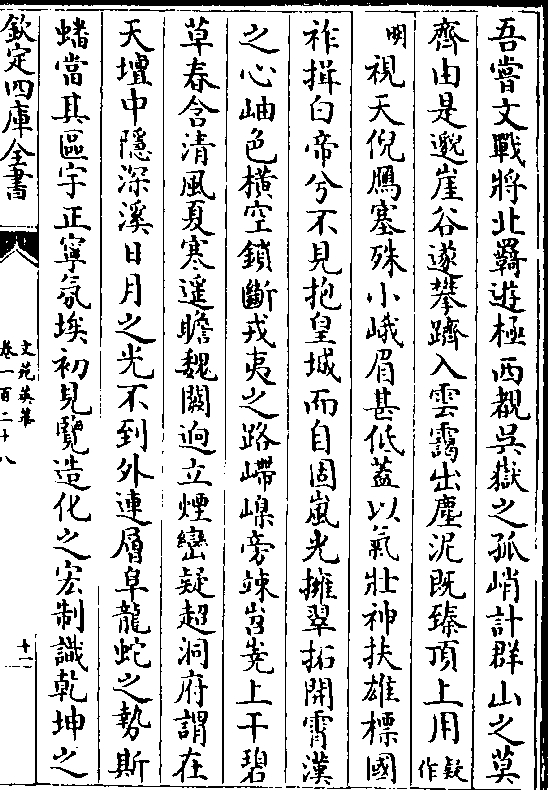 吾嘗文戰將北羇遊極西覩吳嶽之孤峭計羣山之莫
齊由是邈崖谷遂攀躋入雲靄出塵泥既臻頂上用疑作
明視天倪鴈塞殊小峨眉甚低蓋以氣壯神扶雄標國
祚揖白帝兮不見抱皇城而自固嵐光擁翠拓開霄漢
之心岫色橫空鎖斷戎夷之路嵽嵲旁竦岧嶤上干碧
草春含清風夏寒遥瞻魏闕迥立煙巒疑超洞府謂在
天壇中隱深溪日月之光不到外連層阜龍蛇之勢斯
蟠當其區宇正寧氛埃初見覽造化之宏制識乾坤之
欽定四庫全書
文苑英華
卷一百二十八
十二